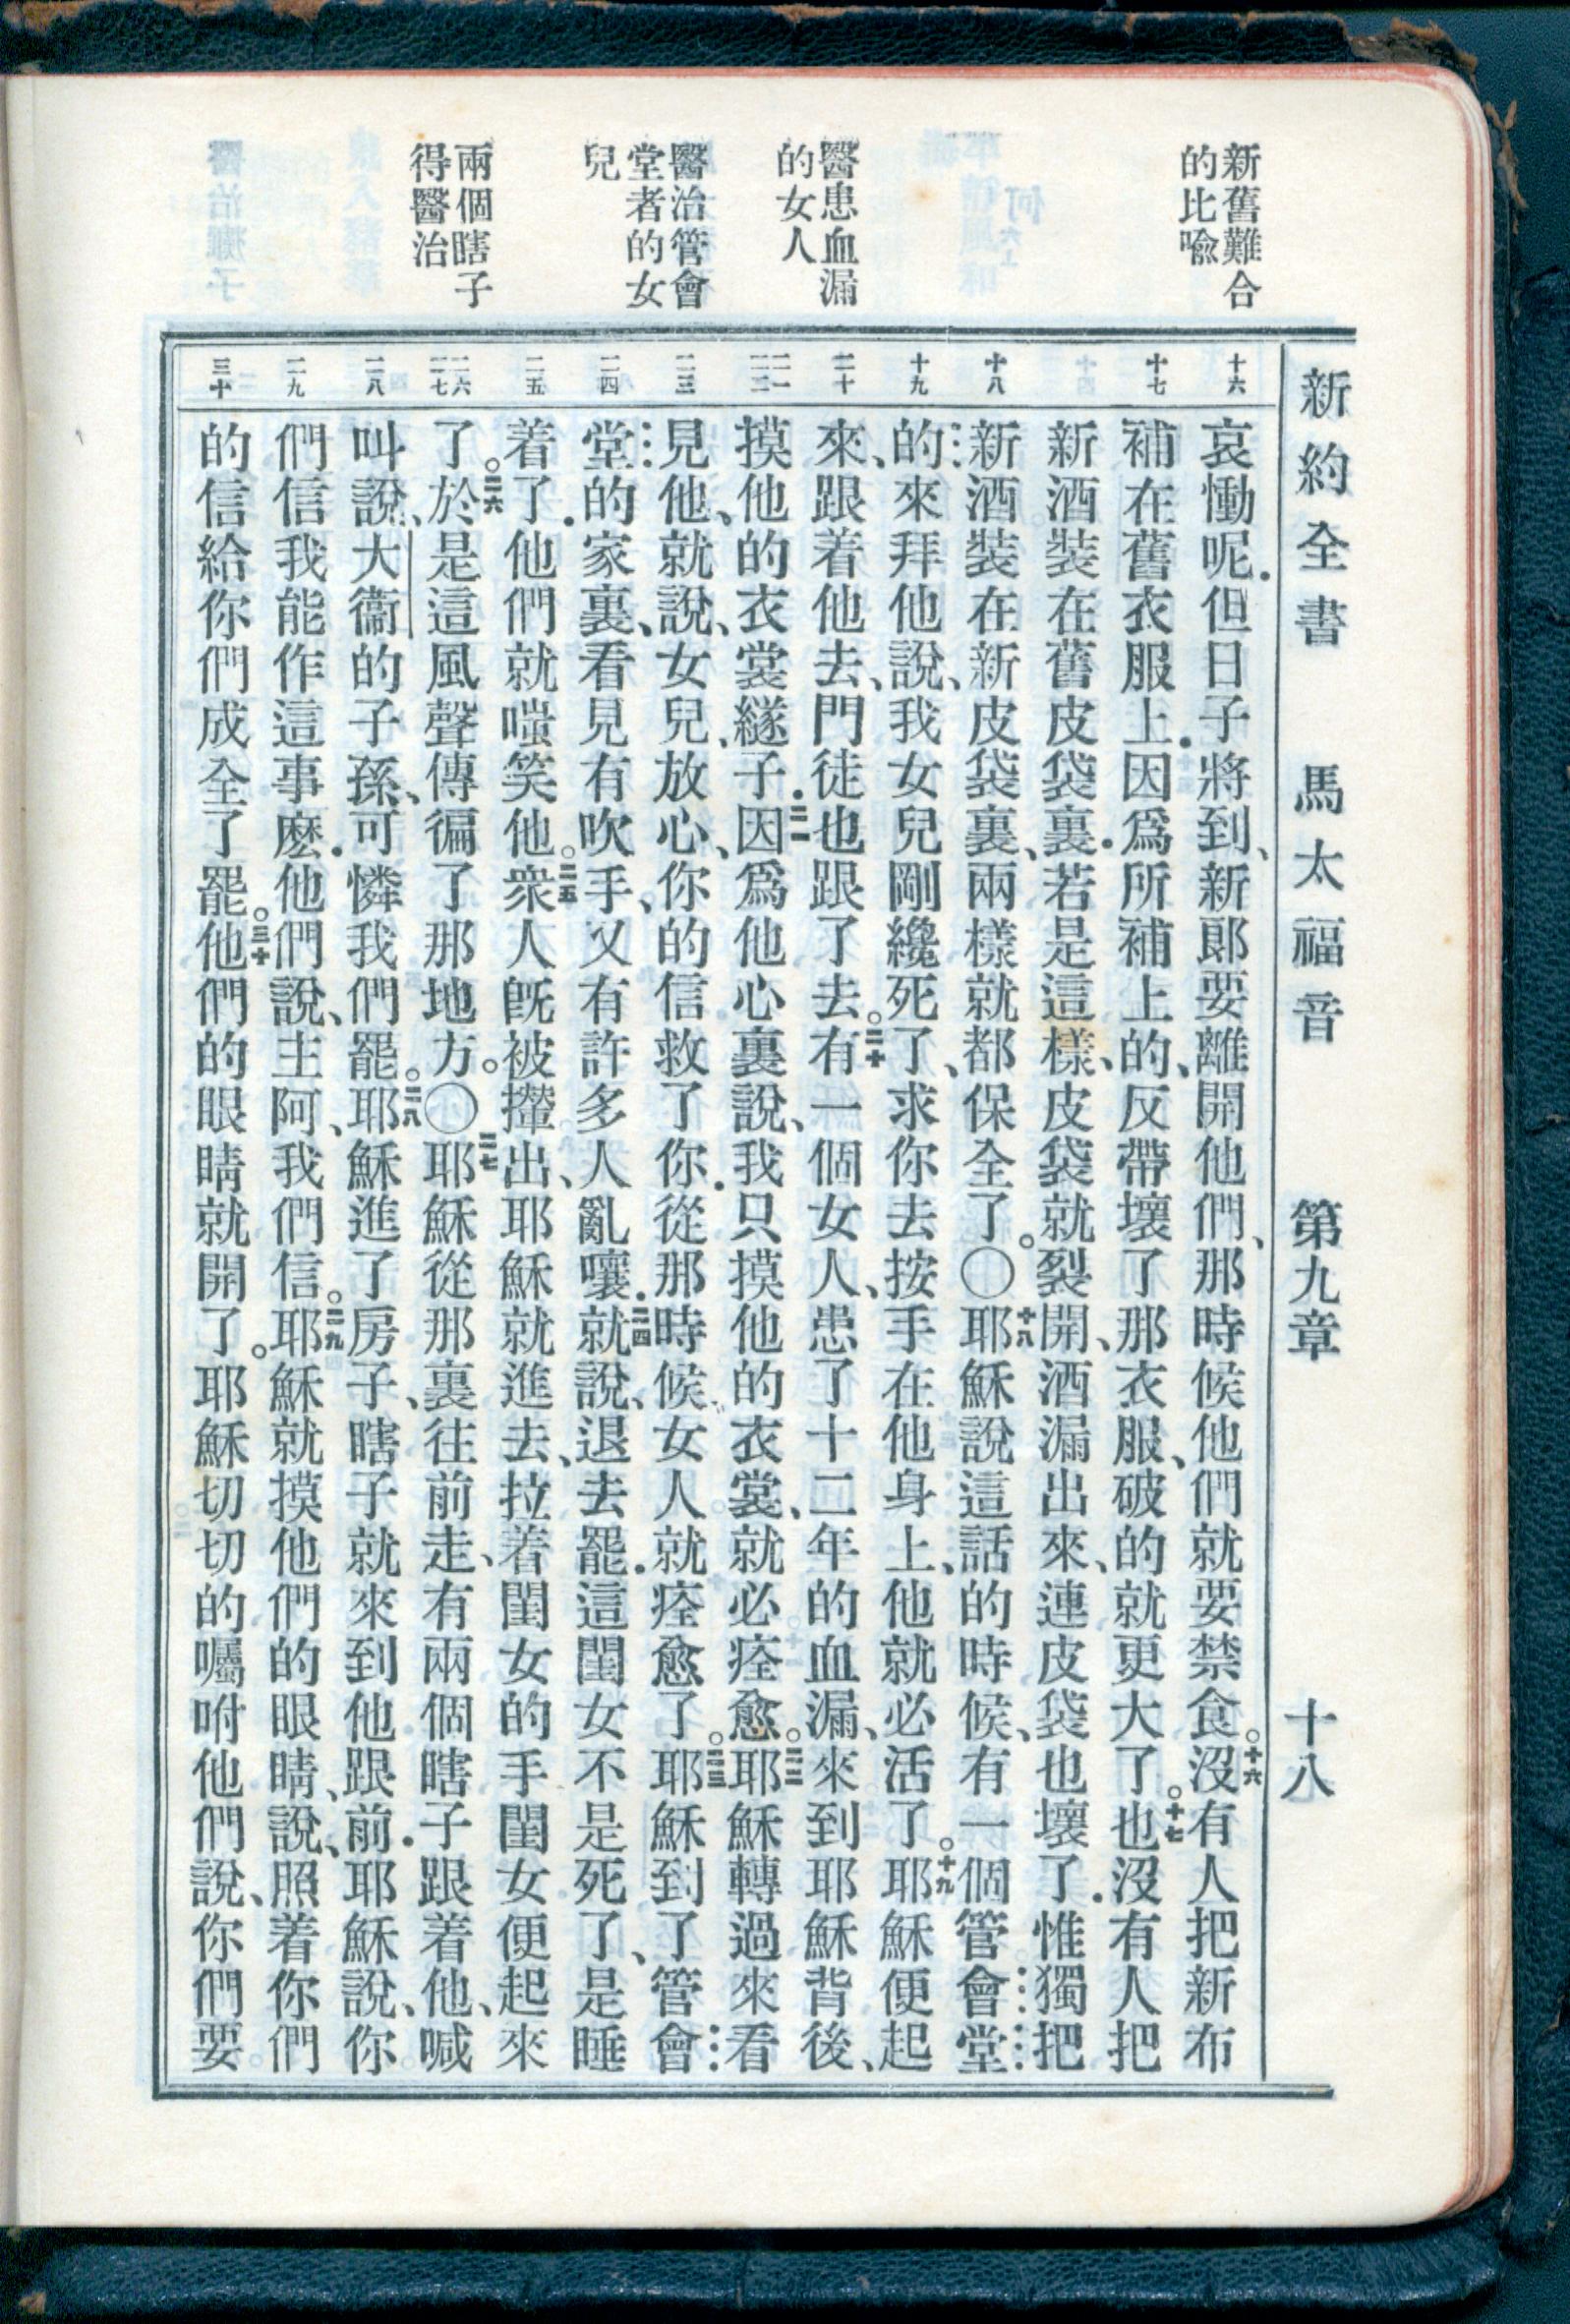 新約全書　馬太福音　第九章　十八
新舊難合
的比喩
醫患血漏
的女人
醫治管會
堂者的女
兒
兩個瞎子
得醫治
十六
十七
十八
十九
二十
二一
二二
二三
二四
二五
二六
二七
二八
二九
三十
哀慟呢．但日子將到、新郞要離開他們、那時候他們就要禁食。十六沒有人把新布
補在舊衣服上．因爲所補上的、反帶壞了那衣服、破的就更大了。十七也沒有人把
新酒裝在舊皮袋裏．若是這樣、皮袋就裂開、酒漏出來、連皮袋也壞了．惟獨把
新酒裝在新皮袋裏、兩樣就都保全了。〇十八耶穌說這話的時候、有一個管會堂
的來拜他說、我女兒剛纔死了、求你去按手在他身上、他就必活了。十九耶穌便起
來、跟着他去、門徒也跟了去。二十有一個女人、患了十二年的血漏、來到耶穌背後、
摸他的衣裳繸子．二一因爲他心裏說、我只摸他的衣裳、就必痊愈。二二耶穌轉過來看
見他、就說、女兒、放心、你的信救了你．從那時候、女人就痊愈了。二三耶穌到了管會
堂的家裏、看見有吹手、又有許多人亂嚷．二四就說、退去罷．這閨女不是死了、是睡
着了．他們就嗤笑他。二五衆人旣被攆出、耶穌就進去、拉着閨女的手、閨女便起來
了。二六於是這風聲傳徧了那地方。〇二七耶穌從那裏往前走、有兩個瞎子跟着他、喊
叫說、大衞的子孫、可憐我們罷。二八耶穌進了房子、瞎子就來到他跟前．耶穌說、你
們信我能作這事麽．他們說、主阿、我們信。二九耶穌就摸他們的眼睛、說、照着你們
的信給你們成全了罷。三十他們的眼睛就開了。耶穌切切的囑咐他們說、你們要